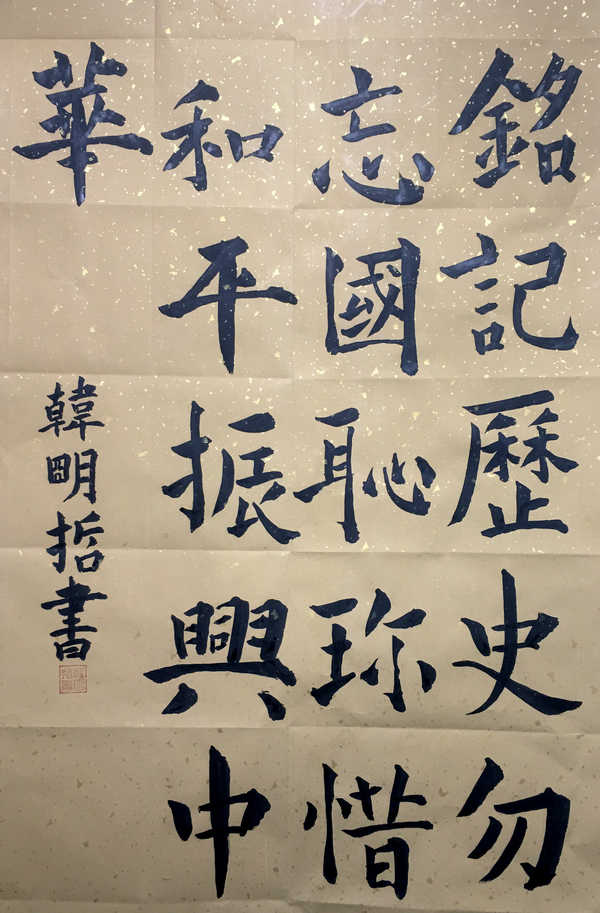 銘記歷史勿
忘國恥珎惜
和平振興中
華
韓明哲書